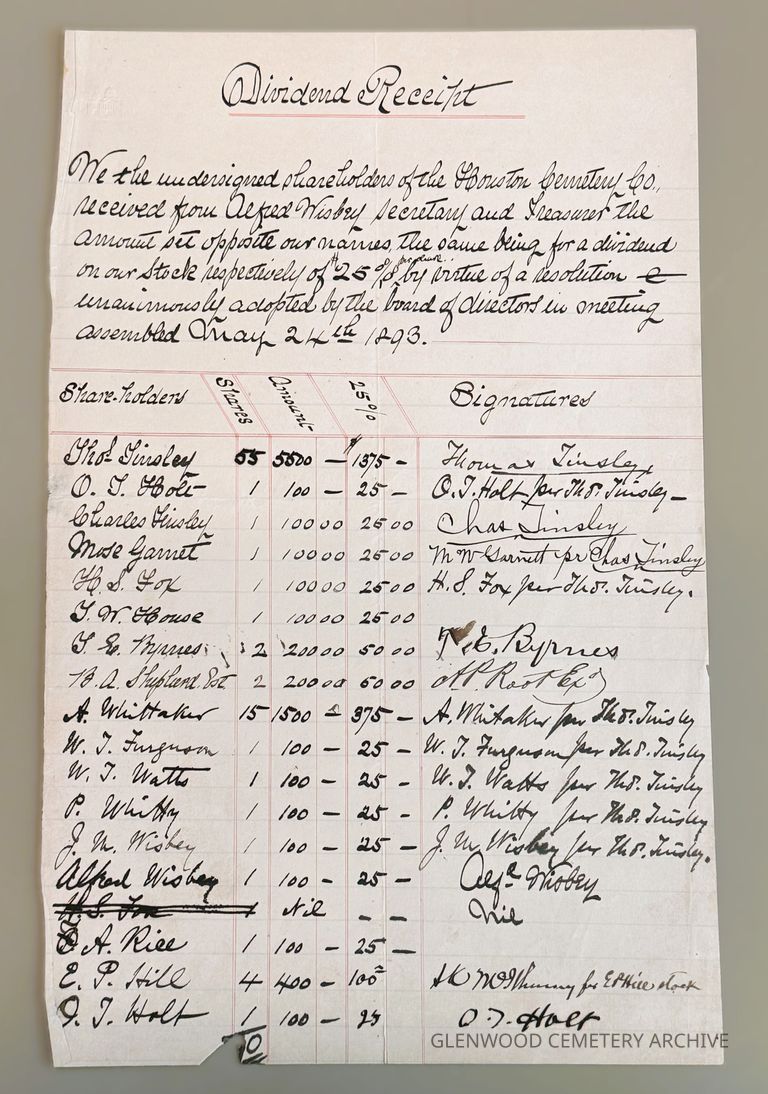 Dividend Receipt
We the undersigned shareholders of the Houston Cemetery Co.,
received from Alfred Wisbey secretary and Treasurer the
amount set opposite our names, the same being for a dividend
on our stock respectively of 25 % by virtue of a resolution
unanimously adopted by the board of directors in meeting
assembled May 24th 1893.
Share-holders Shares Amount 25% Signatures
Thos Tinsley 55 5500 — $1375 — Thomas Tinsley
O. T. Holt 1 100 — 25 — O.T. Holt per Thos. Tinsley —
Charles Tinsley 1 100 00 25 00 Chas Tinsley
Mose Garnet 1 100 00 25 00 M W Garnett pr Chas Tinsley
H. S. Fox 1 100 00 25 00 H. S. Fox per Thos. Tinsley.
T. W. House 1 100 00 25 00
T. E. Byrnes 2 200 00 50 00 T. E. Byrnes
B. A. Shepherd Est 2 200 00 50 00 A.P. Root Exr
A. Whittaker 15 1500 — 375 — A. Whitaker per Thos. Tinsley
W. T. Furguson 1 100 — 25 — W. T. Furguson per Thos. Tinsley
W. T. Watts 1 100 — 25 — W. T. Watts per Thos. Tinsley
P. Whitty 1 100 — 25 - P. Whitty per Thos. Tinsley
J. M. Wisbey 1 100 — 25 — J. M. Wisbey per Thos. Tinsley.
Alfred Wisbey 1 100 — 25 — Alfd Wisbey
H. S. Fox 1 Nil — — Nil
A. Rice 1 100 — 25 —
E. P. Hill 4 400 — 100= for E P Hill stock
O. T. Holt 1 100 — 25 O. T. Holt
GLENWOOD CEMETERY ARCHIVE